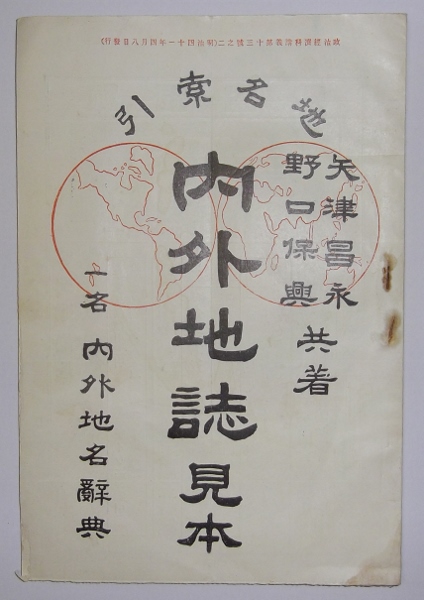 政治經濟科講義第十三號之二(明治四十一年四月八日發行)
地名索引
矢津昌永
野口保興
共著
内外地誌見本
一名 内外地名辭典